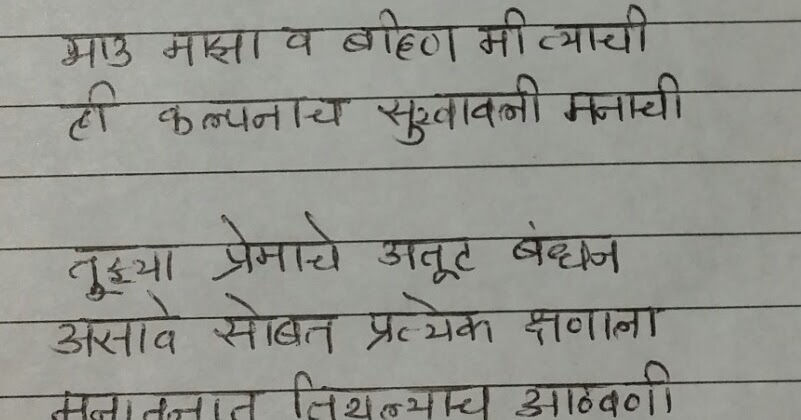 भाउ माझा व बहिण मी त्याची
ही कल्पनाच सुखावनी मनाची
तुझ्या प्रेमाचे अतूट बंधन
असावे सोबत प्रत्येक क्षणाला
मनातनात तिथल्याच आठवणी